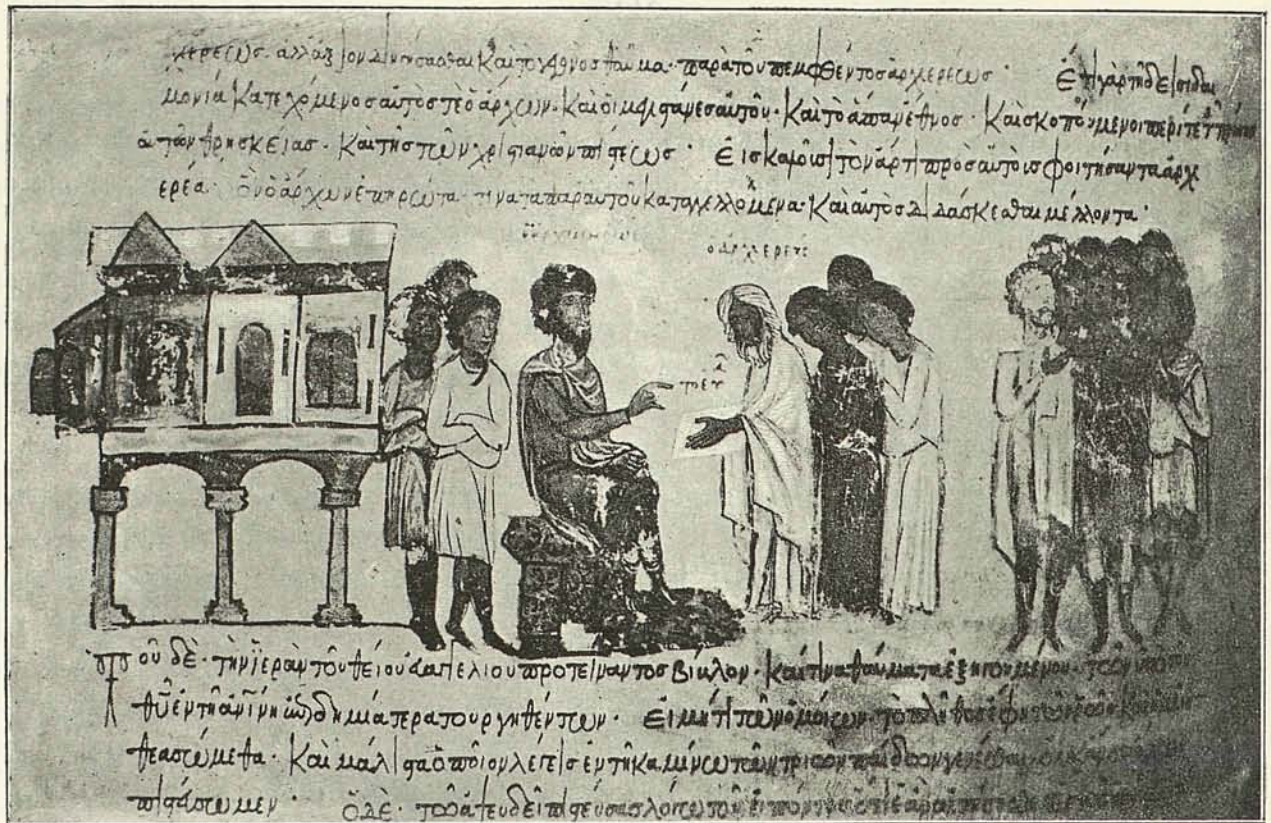 χιερέως. ἀλλ' ἄξιον διηγήσασθαι καὶ τὸ γεγονὸς θαῦμα· παρὰ τοῦ πεμφθέντος ἀρχιερέως· ἔτι γὰρ τῇ δεισιδαι
μονία κατεχόμενος αὐτός τε ὁ ἄρχων· καὶ οἱ μεγιστάνες αὐτοῦ· καὶ τὸ ἅπαν ἔθνος· καὶ σκοπούμενοι περί τε τῆς πρώην
αὐτῶν θρησκείας· καὶ τῆς τῶν χριστιανῶν πίστεως· εἰσκαλοῦσι τὸν ἄρτι πρὸς αὐτοὺς φοιτήσαντα ἀρχι
ερέα· ὃν ὁ ἄρχων ἐπηρώτα· τίνα τὰ παρ' αὐτοῦ καταγγελλόμενα· καὶ αὐτοὺς διδάσκεσθαι μέλλοντα·
ὁ ἀρχιερεύς
τοῦ δὲ· τὴν ἱερὰν τοῦ θείου εὐαγγελίου προτείναντος βίβλον· καὶ τινα θαύματα ἐξηγουμένου· τῶν ὑπὸ τοῦ
θυ ἐν τῇ ἀνίνη ἐπιδημία τερατουργηθέντων· εἰ μή τι τῶν ὁμοίων· τὸ πλῆθος ἔφη τῶν ῥῶς καὶ ἡμεῖς
θεασώμεθα· καὶ μάλιστα ὁποῖον λέγεις ἐν τῇ καμίνω τῶν τριῶν παίδων γενέσθαι·
πιστεύσωμεν· ὁ δὲ· τῶ ἀψευδεῖ πιστεύσας λόγω τοῦ εἰπόντος